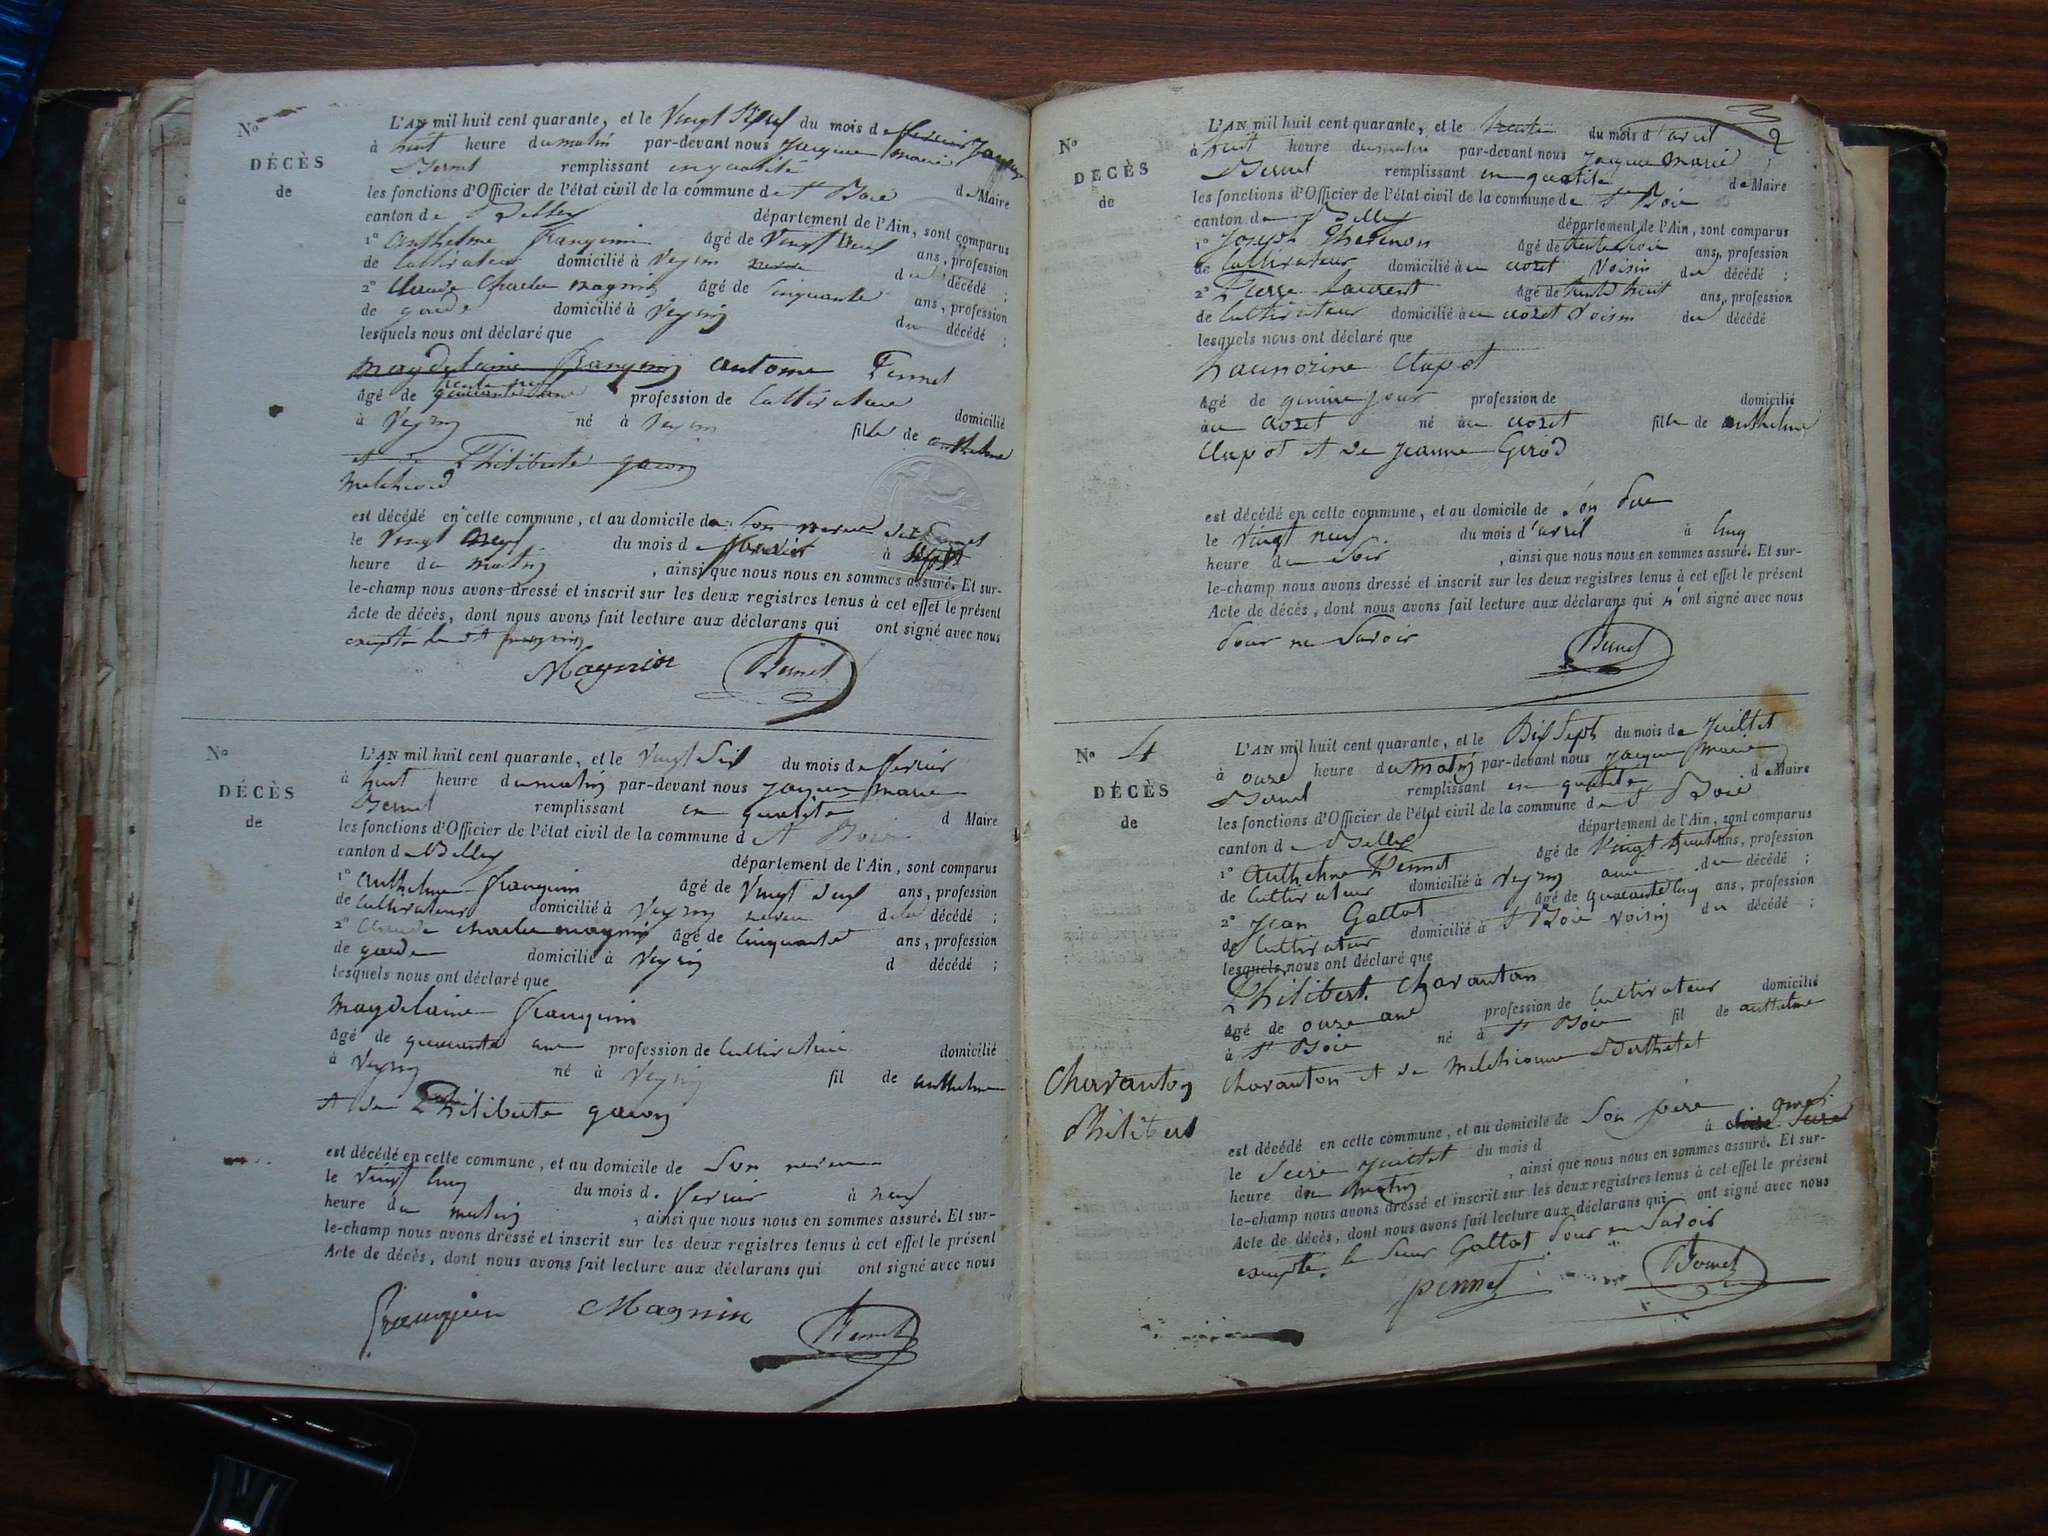 No
DÉCÈS
de
L'AN mil huit cent quarante, et le Vingt neuf du mois de
à huit heure du matin par-devant nous Jacques Marie
Bernet remplissant en qualité
les fonctions d'Officier de l'état civil de la commune de St Boie de Maire
canton de Belley département de l'Ain, sont comparus
1º anthelme franquin âgé de Vingt neuf ans, profession
de Cultivateur domicilié à Veyrin du décédé ;
2º Claude Charles magnin âgé de Cinquante ans, profession
de garde domicilié à Veyrin du décédé ;
lesquels nous ont déclaré que
magdelaine franquin antoine Pennet
âgé de profession de Cultivateur domicilié
à Veyrin né à Veyrin fille de anthelme
et de Philiberte gacon
Melchiord
est décédé en cette commune, et au domicile de Son
le Vingt neuf du mois de à
heure du matin , ainsi que nous nous en sommes assuré. Et sur-
le-champ nous avons dressé et inscrit sur les deux registres tenus à cet effet le présent
Acte de décès, dont nous avons fait lecture aux déclarans qui ont signé avec nous
excepté le dt franquin
Magnin Bernet
No
DÉCÈS
de
L'AN mil huit cent quarante, et le Vingt Six du mois de fevrier
à huit heure du matin par-devant nous Jacques Marie
Bernet remplissant en qualité d Maire
les fonctions d'Officier de l'état civil de la commune d St Boie
canton de Belley département de l'Ain, sont comparus
1º anthelme franquin âgé de Vingt neuf ans, profession
de Cultivateur domicilié à Veyrin neveu de la décédé ;
2º Claude Charles magnin âgé de Cinquante ans, profession
de garde domicilié à Veyrin d décédé ;
lesquels nous ont déclaré que
magdelaine franquin
âgé de quarante ans profession de Cultivatrice domicilié
à Veyrin né à Veyrin fil de anthelme
et de Philiberte gacon
est décédé en cette commune, et au domicile de Son neveu
le Vingt Cinq du mois d. fevrier à neuf
heure du matin , ainsi que nous nous en sommes assuré. Et sur-
le-champ nous avons dressé et inscrit sur les deux registres tenus à cet effet le présent
Acte de décès, dont nous avons fait lecture aux déclarans qui ont signé avec nous
Franquin Magnin Bernet
2
No
DÉCÈS
de
L'AN mil huit cent quarante, et le trente du mois d'avril
à huit heure du matin par-devant nous Jacques Marie ;
Bernet remplissant en qualité de Maire
les fonctions d'Officier de l'état civil de la commune de St Boie
canton de Belley département de l'Ain, sont comparus
1º Joseph Thevenon âgé de trente trois ans, profession
de Cultivateur domicilié au crozet Voisin du décédé ;
2º Pierre Laurent âgé de trente huit ans, profession
de Cultivateur domicilié au crozet Voisin du décédé
lesquels nous ont déclaré que
Clapot
âgé de quinze jour profession de domicilié
au crozet né au crozet fille de anthelme
Clapot et de Jeanne Girod
est décédé en cette commune, et au domicile de Son Père
le Vingt neuf du mois d'avril à Cinq
heure du Soir , ainsi que nous nous en sommes assuré. Et sur-
le-champ nous avons dressé et inscrit sur les deux registres tenus à cet effet le présent
Acte de décès, dont nous avons fait lecture aux déclarans qui n'ont signé avec nous
Pour ne Savoir
Bernet
No 4
DÉCÈS
de
Charanton
Philibert
L'AN mil huit cent quarante, et le Dix Sept du mois de Juillet
à onze heure du matin par-devant nous Jacques Marie
Bernet remplissant en qualité de Maire
les fonctions d'Officier de l'état civil de la commune de St Boie
canton de Belley département de l'Ain, sont comparus
1º Anthelme Pennet âgé de Vingt huit ans, profession
de Cultivateur domicilié à Veyrin ami du décédé ;
2º Jean Gallot âgé de quarante Cinq ans, profession
de Cultivateur domicilié à St Boie Voisin du décédé ;
lesquels nous ont déclaré que
Philibert Charanton
âgé de onze ans profession de Cultivateur domicilié
à St Boie né à St Boie fil de anthelme
Charanton et de Melchionne Berthelet
est décédé en cette commune, et au domicile de Son père à onze
le Seize Juillet du mois d
heure du matin , ainsi que nous nous en sommes assuré. Et sur-
le-champ nous avons dressé et inscrit sur les deux registres tenus à cet effet le présent
Acte de décès, dont nous avons fait lecture aux déclarans qui ont signé avec nous
excepté le Sieur Gallot Pour ne Savoir
Pennet Bernet